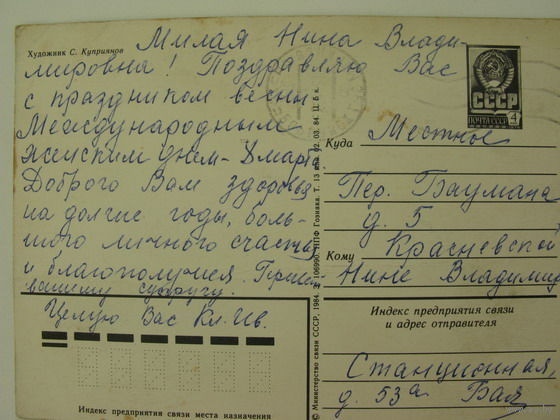 Художник С. Куприянов
Милая Нина Влади-
мировна! Поздравляю Вас
с праздником весны
Международным
женским днем - 8 марта
Доброго Вам здоровья
на долгие годы, боль-
шого личного счастья
и благополучия.
вашему супругу.
Целую Вас Кл. Ив.
Индекс предприятия связи места назначения
© Министерство связи СССР, 1984
ППФ Гознака.
СССР
ПОЧТА СССР 4
Куда Местное
Пер. Баумана
д. 5
Кому Красневской
Нине Владимир
Индекс предприятия связи
и адрес отправителя
Станционная,
д. 53а